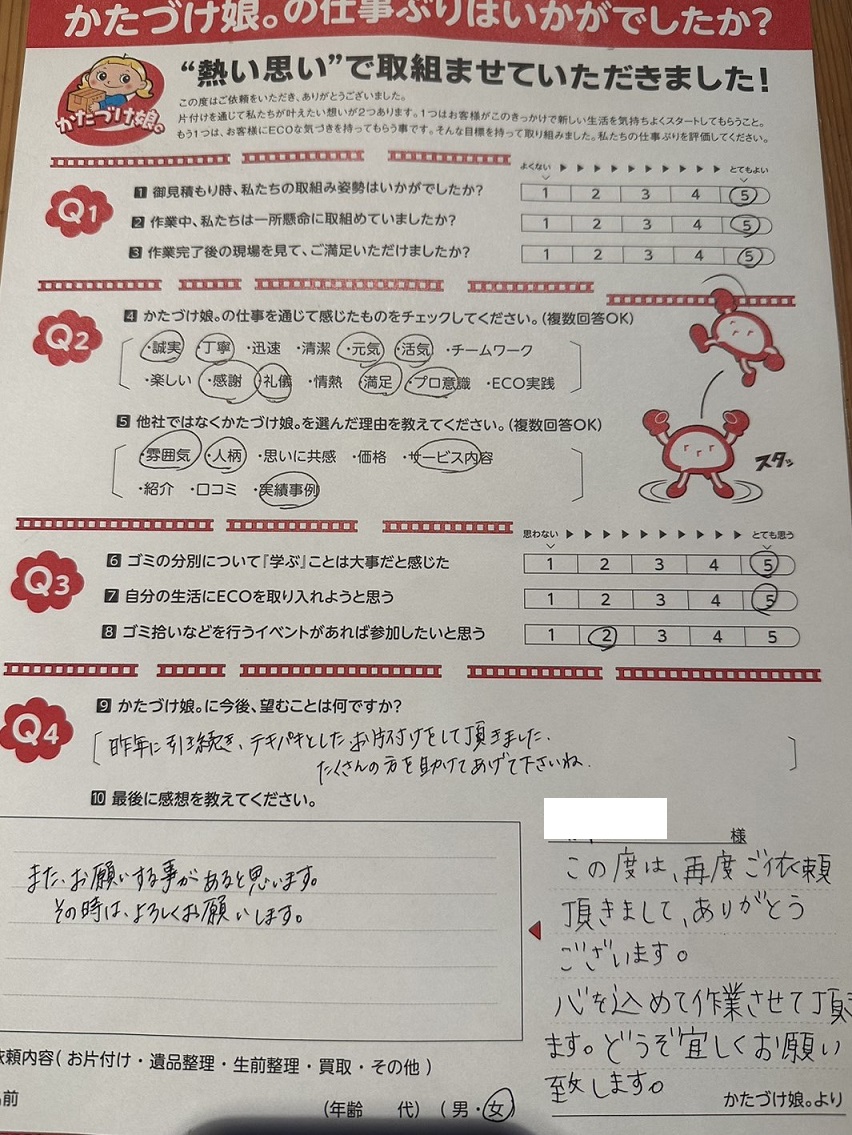 かたづけ娘。の仕事ぶりはいかがでしたか?
かたづけ娘。
“熱い思い”で取組ませていただきました!
この度はご依頼をいただき、ありがとうございました。
片付けを通じて私たちが叶えたい想いが2つあります。1つはお客様がこのきっかけで新しい生活を気持ちよくスタートしてもらうこと。
もう1つは、お客様にECOな気づきを持ってもらう事です。そんな目標を持って取り組みました。私たちの仕事ぶりを評価してください。
よくない ▶ ▶ ▶ ▶ ▶ ▶ ▶ ▶ ▶ とてもよい
Q1
1 御見積もり時、私たちの取組み姿勢はいかがでしたか? 1 2 3 4 5
2 作業中、私たちは一所懸命に取組めていましたか? 1 2 3 4 5
3 作業完了後の現場を見て、ご満足いただけましたか? 1 2 3 4 5
Q2
4 かたづけ娘。の仕事を通じて感じたものをチェックしてください。(複数回答OK)
・誠実 ・丁寧 ・迅速 ・清潔 ・元気 ・活気 ・チームワーク
・楽しい ・感謝 ・礼儀 ・情熱 ・満足 ・プロ意識 ・ECO実践
5 他社ではなくかたづけ娘。を選んだ理由を教えてください。(複数回答OK)
・雰囲気 ・人柄 ・思いに共感 ・価格 ・サービス内容
・紹介 ・口コミ ・実績事例
スタッ
思わない ▶ ▶ ▶ ▶ ▶ ▶ ▶ ▶ ▶ とても思う
Q3
6 ゴミの分別について『学ぶ』ことは大事だと感じた 1 2 3 4 5
7 自分の生活にECOを取り入れようと思う 1 2 3 4 5
8 ゴミ拾いなどを行うイベントがあれば参加したいと思う 1 2 3 4 5
Q4
9 かたづけ娘。に今後、望むことは何ですか?
昨年に引き続き、テキパキとしたお片付けをして頂きました。
たくさんの方を助けてあげて下さいね。
10 最後に感想を教えてください。
また、お願いする事があると思います。
その時は、よろしくお願いします。
様
この度は、再度ご依頼
頂きまして、ありがとう
ございます。
心を込めて作業させて頂き
ます。どうぞ宜しくお願い
致します。
かたづけ娘。より
依頼内容(お片付け・遺品整理・生前整理・買取・その他)
前
(年齢 代) (男・女)